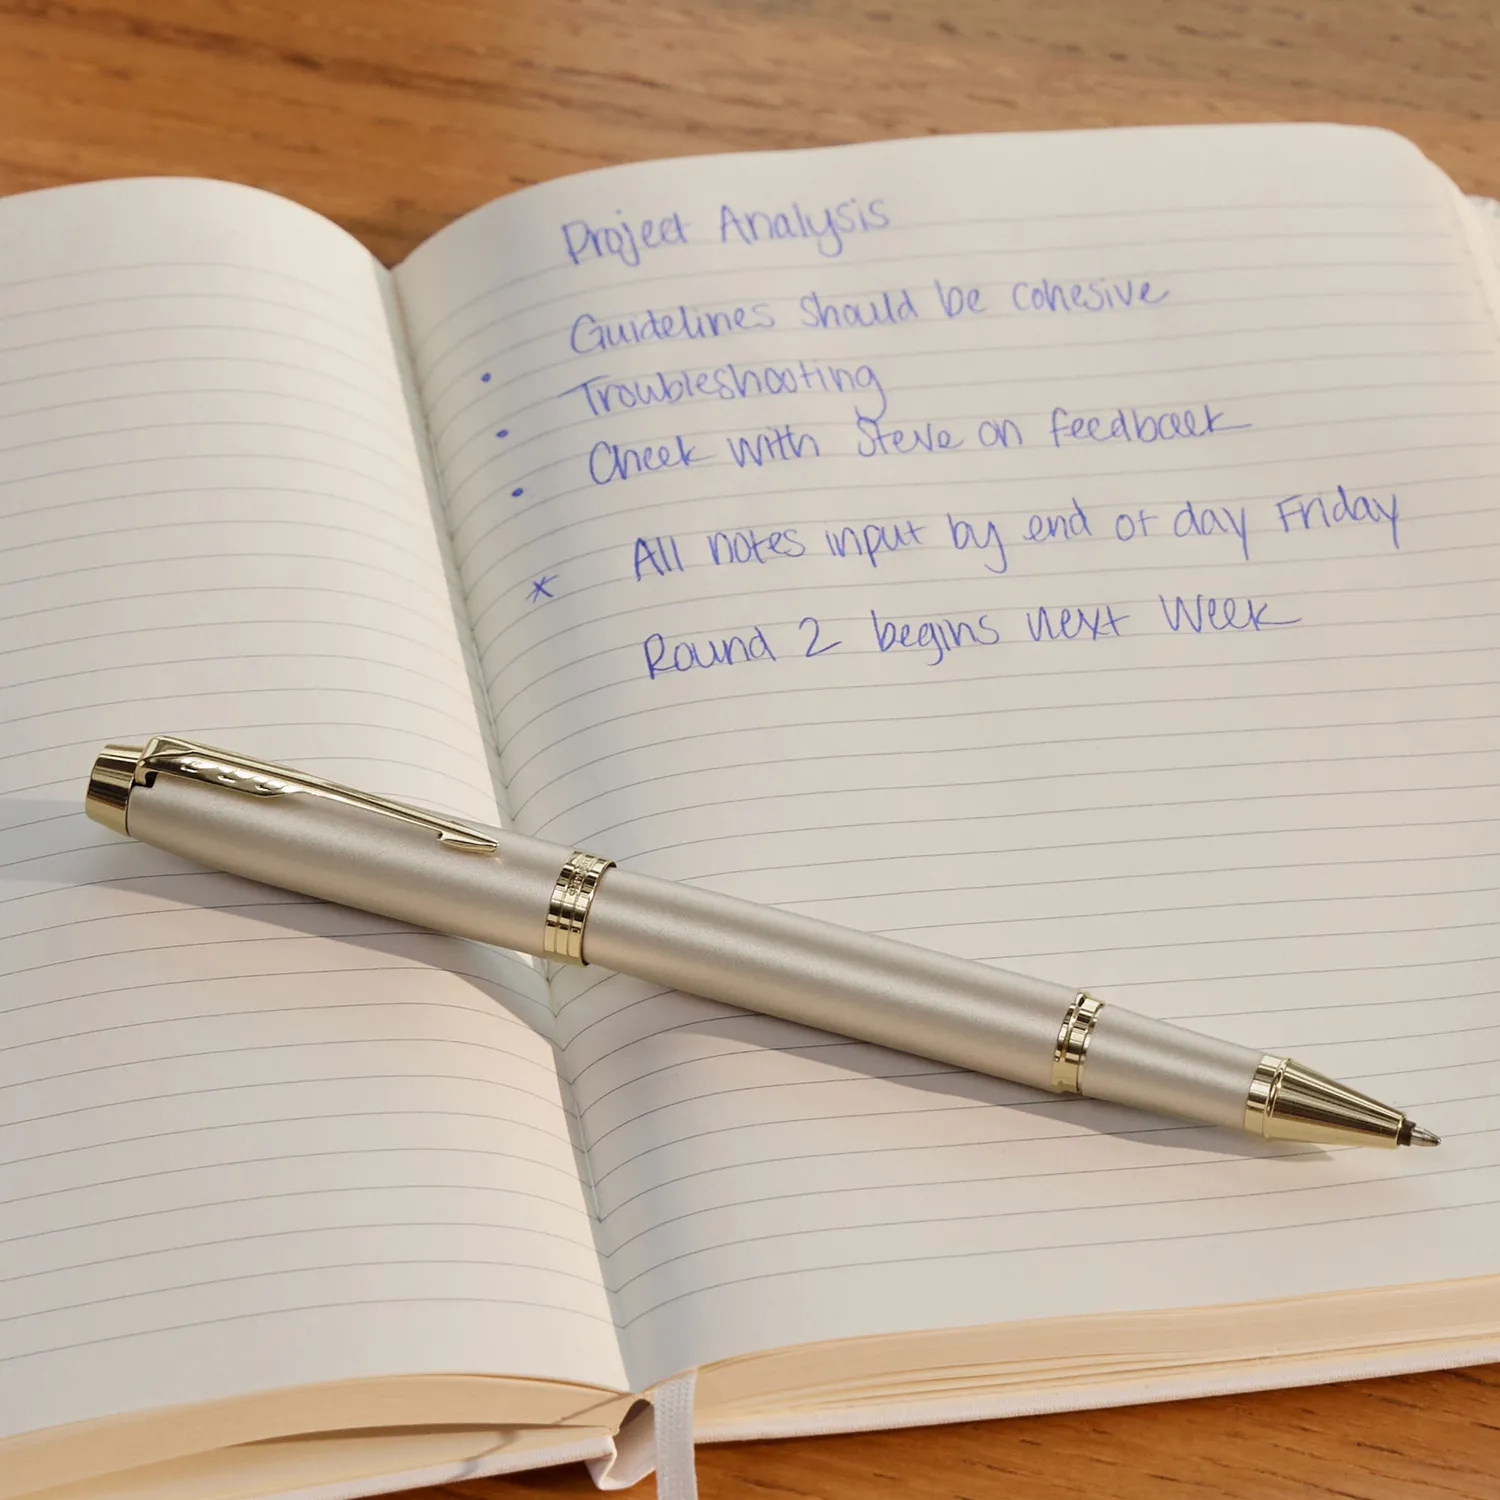 Project Analysis
Guidelines should be cohesive
• Troubleshooting
• Check with Steve on feedback
•
All notes input by end of day Friday
* Round 2 begins next week